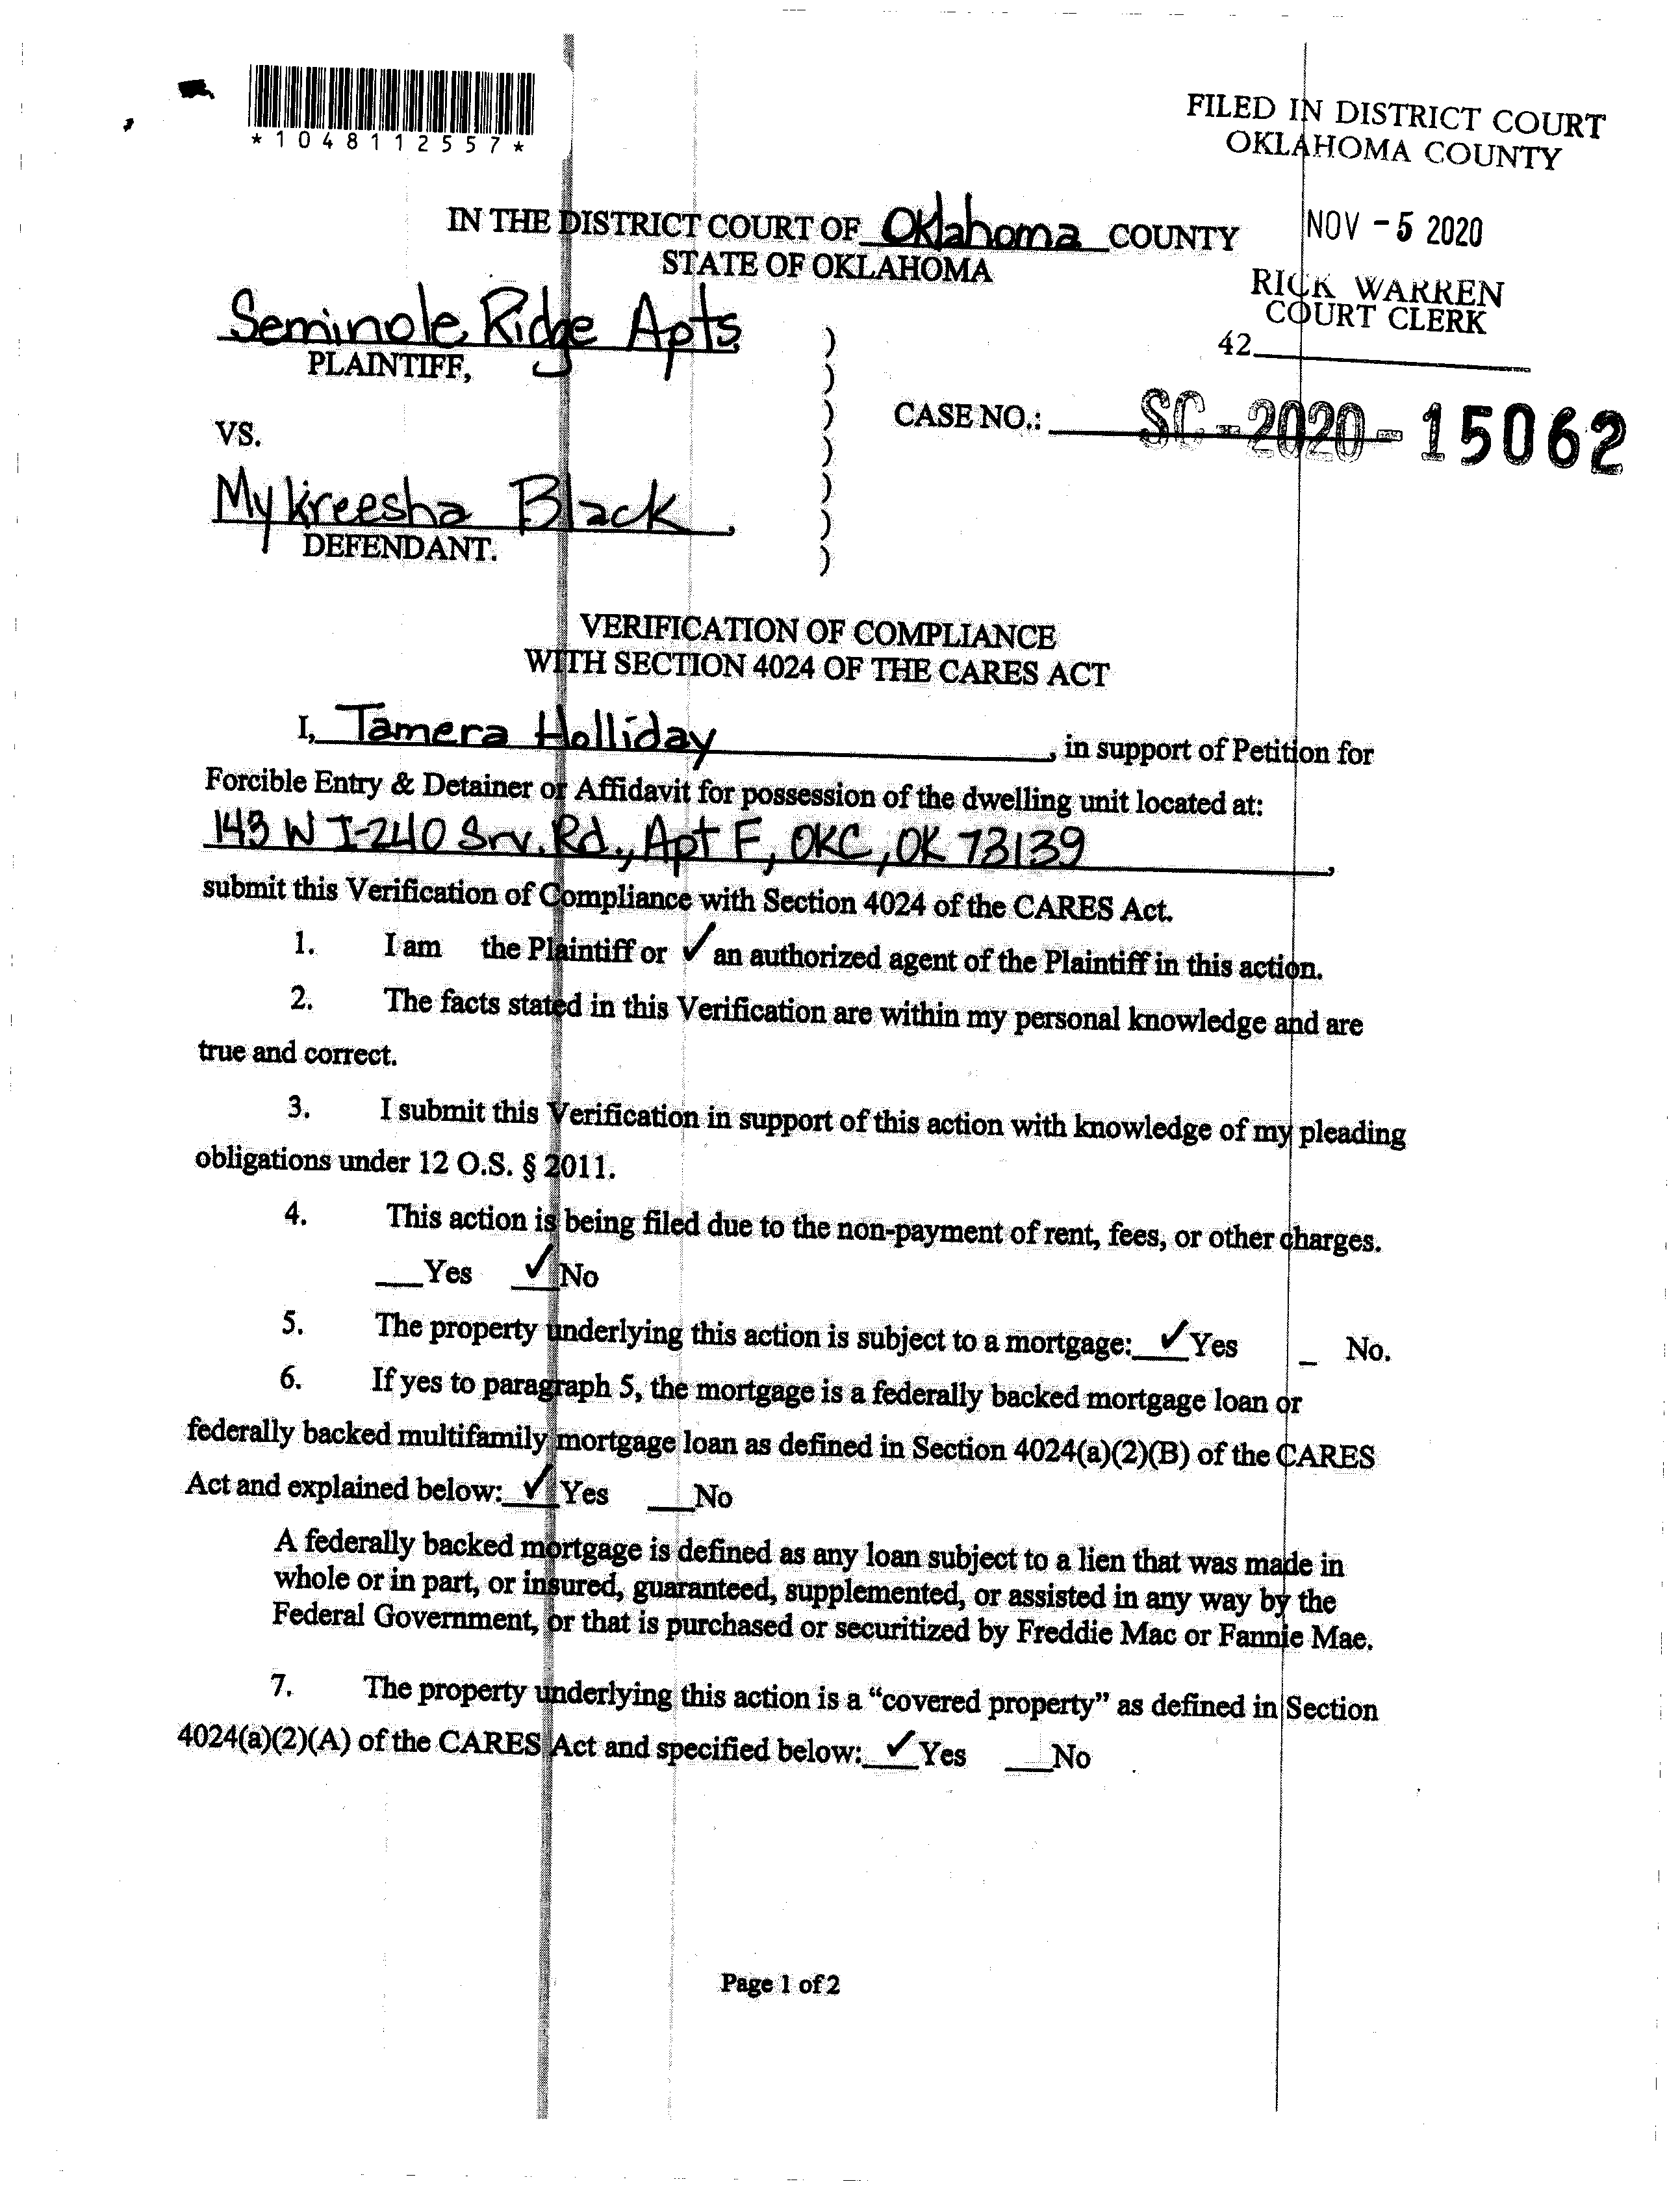 *1048112557*
FILED IN DISTRICT COURT
OKLAHOMA COUNTY
IN THE DISTRICT COURT OF Oklahoma COUNTY
STATE OF OKLAHOMA
NOV -5 2020
RICK WARREN
COURT CLERK
42
Seminole Ridge Apts
PLAINTIFF,
)
)
)
)
)
)
)
CASE NO.: SC-2020-15062
VS.
Mykireesha Black,
DEFENDANT.
VERIFICATION OF COMPLIANCE
WITH SECTION 4024 OF THE CARES ACT
I, Tamera Holliday, in support of Petition for
Forcible Entry & Detainer or Affidavit for possession of the dwelling unit located at:
143 W I-240 Srv. Rd., Apt F, OKC, OK 73139,
submit this Verification of Compliance with Section 4024 of the CARES Act.
1. I am the Plaintiff or ✓ an authorized agent of the Plaintiff in this action.
2. The facts stated in this Verification are within my personal knowledge and are
true and correct.
3. I submit this Verification in support of this action with knowledge of my pleading
obligations under 12 O.S. § 2011.
4. This action is being filed due to the non-payment of rent, fees, or other charges.
___Yes ✓ No
5. The property underlying this action is subject to a mortgage: ✓ Yes _ No.
6. If yes to paragraph 5, the mortgage is a federally backed mortgage loan or
federally backed multifamily mortgage loan as defined in Section 4024(a)(2)(B) of the CARES
Act and explained below: ✓ Yes ___No
A federally backed mortgage is defined as any loan subject to a lien that was made in
whole or in part, or insured, guaranteed, supplemented, or assisted in any way by the
Federal Government, or that is purchased or securitized by Freddie Mac or Fannie Mae.
7. The property underlying this action is a “covered property” as defined in Section
4024(a)(2)(A) of the CARES Act and specified below: ✓ Yes ___No
Page 1 of 2